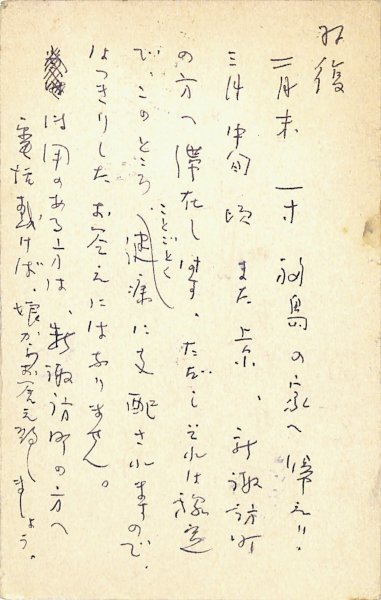 拝復
二月末 一寸 福島の家へ帰えり、
三月中旬頃 また上京、新諏訪町
の方へ滞在します。ただしそれは豫定
で、このところ、ことごとく健康に支配されますので、
はっきりしたお答えにはなりません。
御用のある方は、新諏訪町の方へ
電話戴けば、娘からお答え致しましょう。